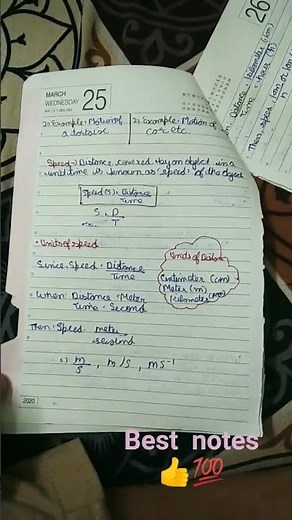 MARCH
WEDNESDAY 25
2) Example:- Motion of
a tortoise
2) Example:- Motion of
car etc.
Speed → Distance covered by an object in a
unit time is known as speed of the object
Speed(s) = Distance
Time
S = D
T
• Units of speed
Since, Speed = Distance
Time
When Distance = Meter
Time = Second
Then Speed = meter
second
m
s , m/s , ms⁻¹
Units of Distance
Centimeter (cm)
Meter (m)
Kilometer (km)
2020
26
Distance Kilometer (km)
Time = hour (h)
Then Speed = km
Best notes
👍💯